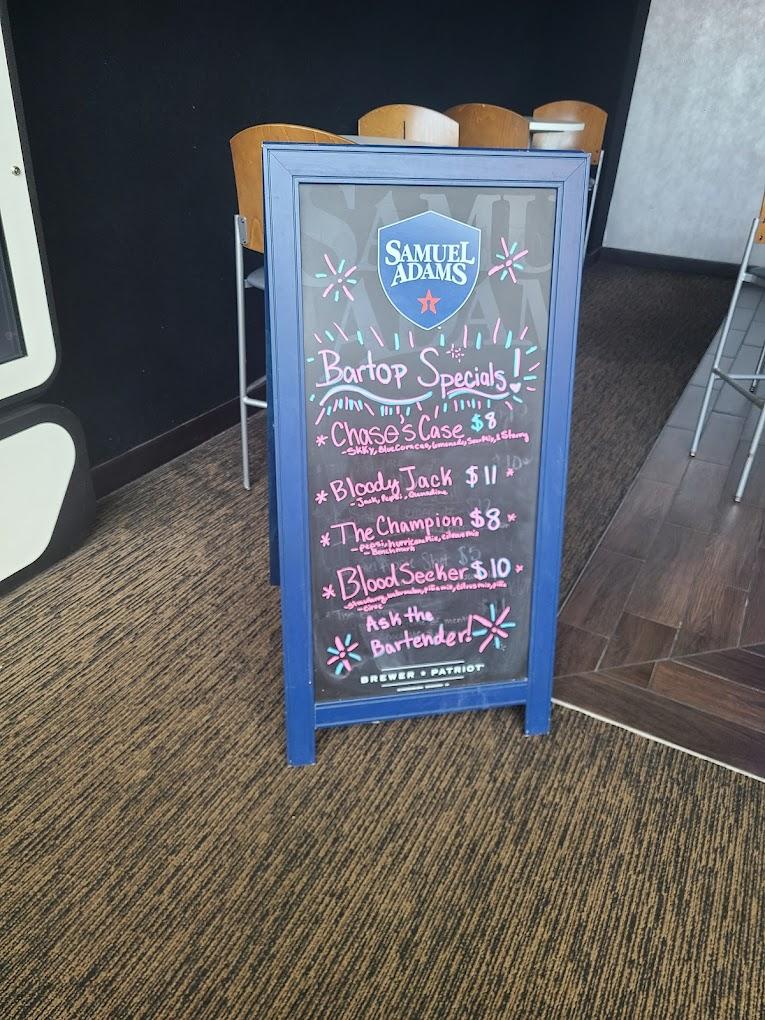 SAMUEL
ADAMS
Bartop Specials!
* Chase's Case $8
-SKKY, Blue Coracao, Lemonade, Sour Mix, & Starry
* Bloody Jack $11 *
-Jack, Pepsi, Grenadine
* The Champion $8 *
-Pepsi, hurricane mix, citrus mix
-Benchmark
* Blood Seeker $10 *
-Strawberry, watermelon, piña mix, citrus mix,
-Ciroc
Ask the
Bartender!
BREWER ★ PATRIOT